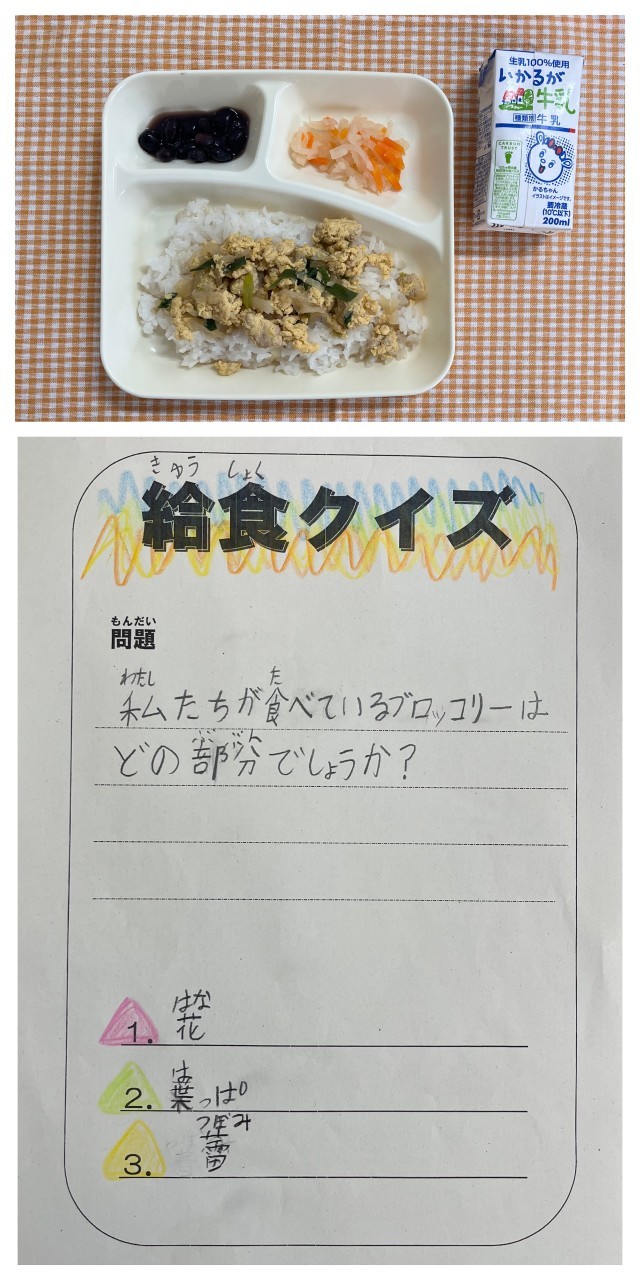 生乳100%使用
いかるが
牛乳
種類別 牛乳
CARBON
TRUST
かるちゃん
イラストはイメージです。
要冷蔵
(10℃以下)
200ml
きゅう しょく
給食クイズ
もんだい
問題
わたし た
私たちが食べているブロッコリーは
ぶ ぶん
どの部分でしょうか?
はな
1. 花
は
2. 葉っぱ
つぼみ
3. 蕾